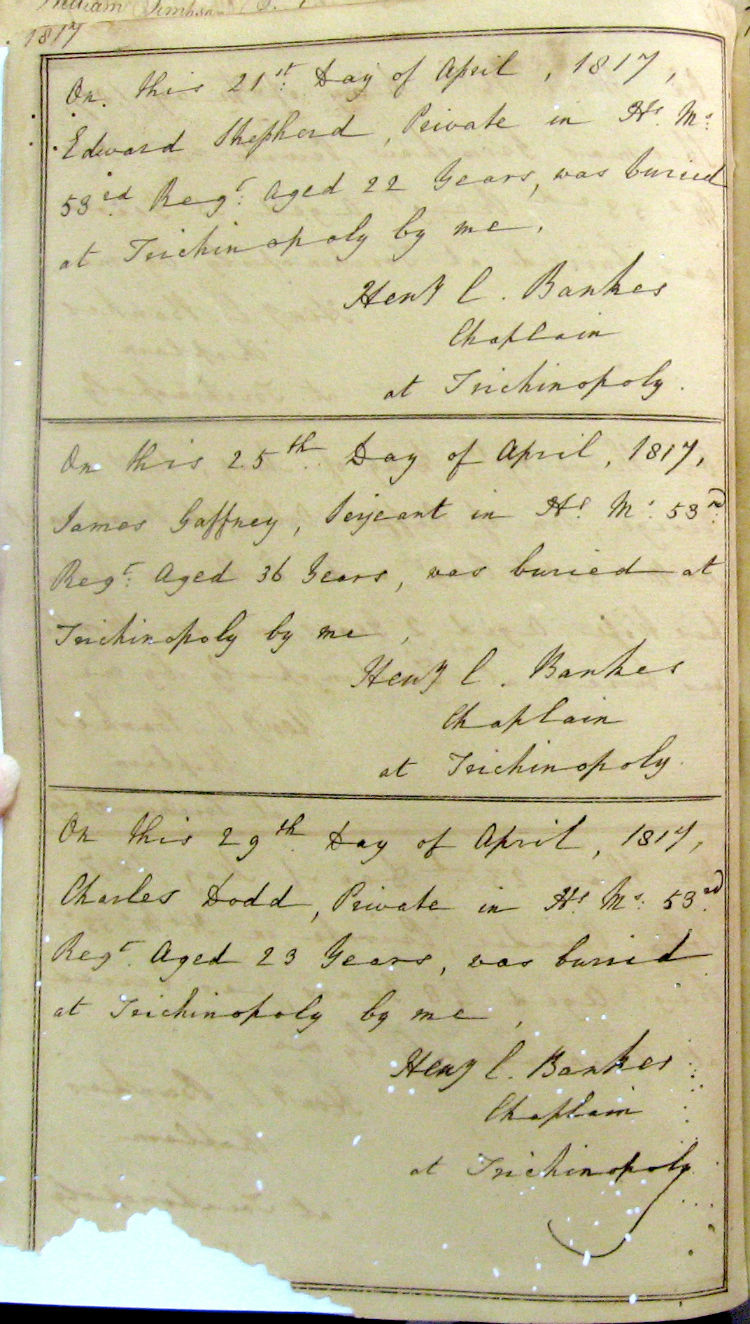 William
1817
On this 21st Day of April, 1817,
Edward Shepherd, Private in Hs. Ms.
53rd Regt. Aged 22 Years, was buried
at Trichinopoly by me,
Heny C. Bankes
Chaplain
at Trichinopoly.
On this 25th Day of April, 1817,
James Gaffney, Serjeant in Hs. Ms. 53rd
Regt. Aged 36 Years, was buried at
Trichinopoly by me,
Heny C. Bankes
Chaplain
at Trichinopoly.
On this 29th Day of April, 1817,
Charles Dodd, Private in Hs. Ms. 53rd
Regt. Aged 23 Years, was buried
at Trichinopoly by me,
Heny C. Bankes
Chaplain
at Trichinopoly